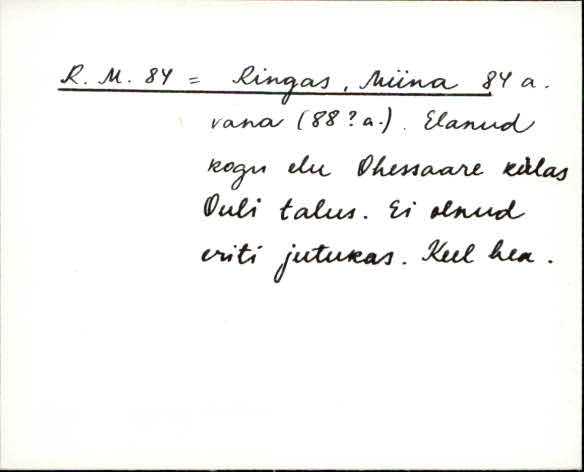 R. M. 84 = Ringas, Miina 84 a.
vana (88? a.). Elanud
kogu elu Ohessaare külas
Ouli talus. Ei olnud
eriti jutukas. Keel hea.